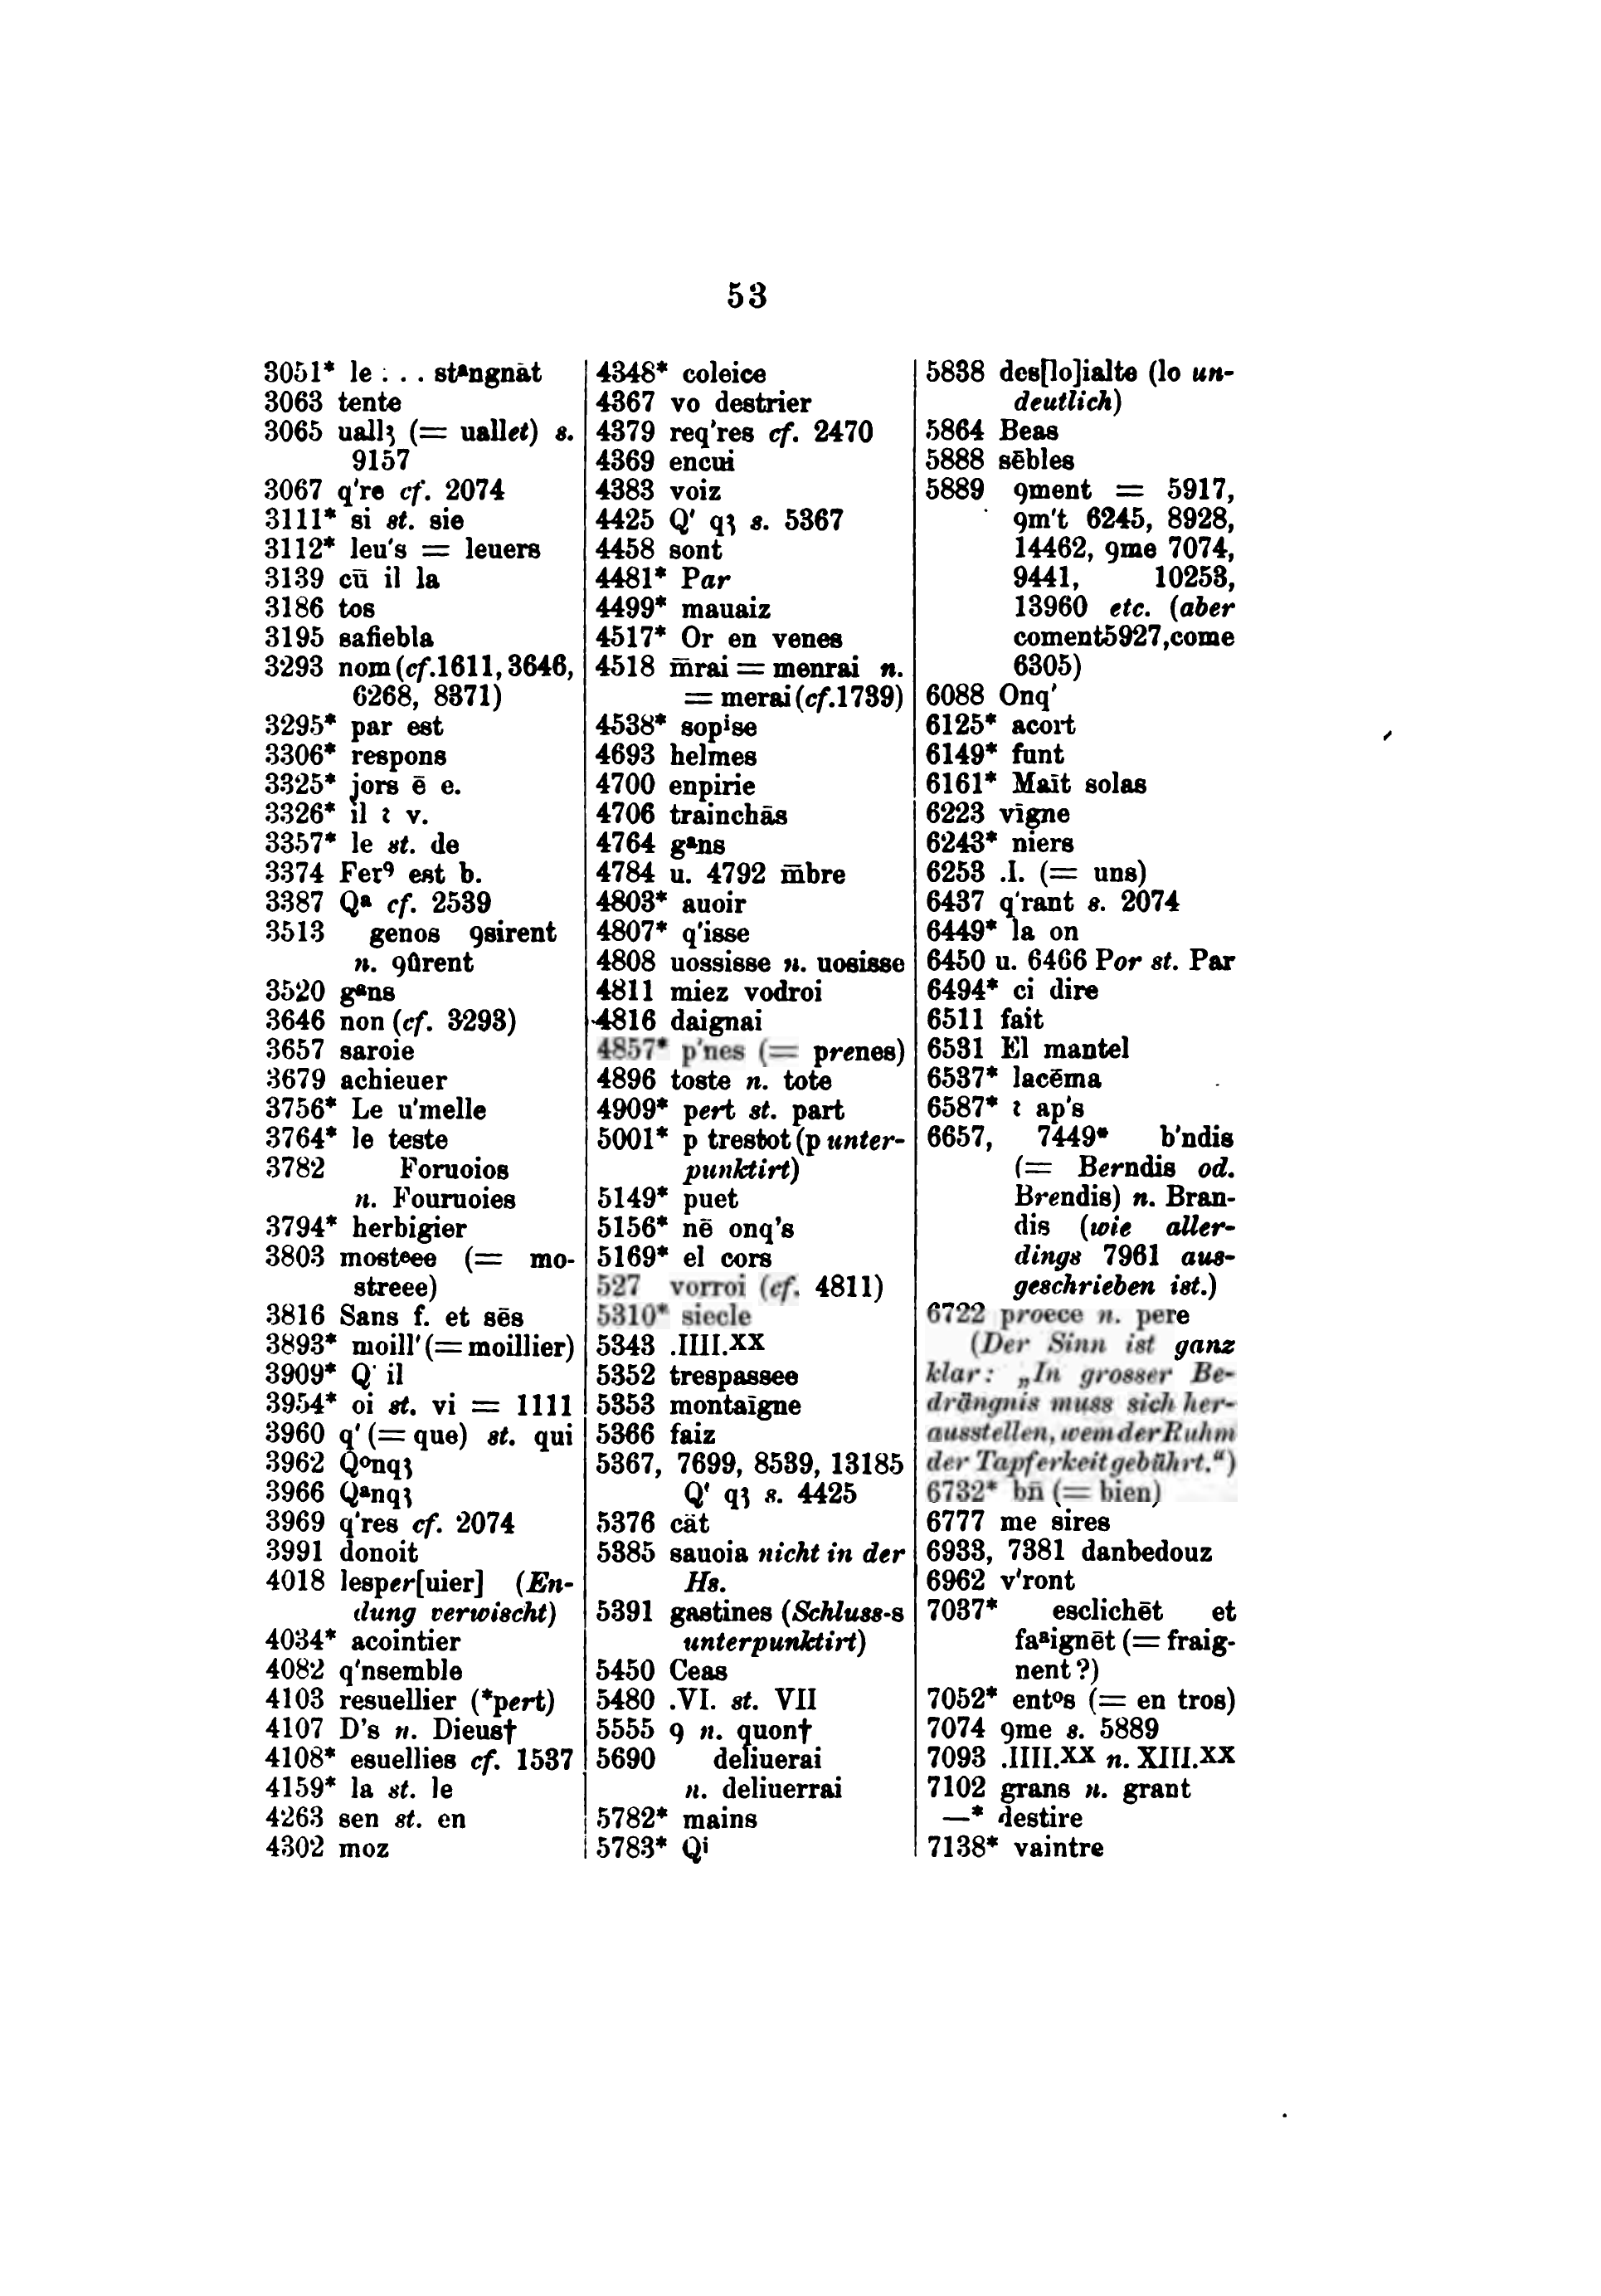 53
3051* le . . . stᵃngnāt
3063 tente
3065 uallꝫ (= uallet) s.
9157
3067 q're cf. 2074
3111* si st. sie
3112* leu's = leuers
3139 cū il la
3186 tos
3195 safiebla
3293 nom (cf. 1611, 3646,
6268, 8371)
3295* par est
3306* respons
3325* jors ē e.
3326* il ꝛ v.
3357* le st. de
3374 Fer⁹ est b.
3387 Qᵃ cf. 2539
3513 genos 9sirent
n. 9ûrent
3520 gᵃns
3646 non (cf. 3293)
3657 saroie
3679 achieuer
3756* Le u'melle
3764* le teste
3782 Foruoios
n. Fouruoies
3794* herbigier
3803 mostᵉee (= mo-
streee)
3816 Sans f. et sēs
3893* moill' (= moillier)
3909* Q' il
3954* oi st. vi = 1111
3960 q' (= que) st. qui
3962 Qᵒnqꝫ
3966 Qᵃnqꝫ
3969 q'res cf. 2074
3991 donoit
4018 lesper[uier] (En-
dung verwischt)
4034* acointier
4082 q'nsemble
4103 resuellier (*pert)
4107 D's n. Dieus†
4108* esuellies cf. 1537
4159* la st. le
4263 sen st. en
4302 moz
4348* coleice
4367 vo destrier
4379 req'res cf. 2470
4369 encui
4383 voiz
4425 Q' qꝫ s. 5367
4458 sont
4481* Par
4499* mauaiz
4517* Or en venes
4518 m̄rai = menrai n.
= merai (cf. 1739)
4538* sopⁱse
4693 helmes
4700 enpirie
4706 trainchās
4764 gᵃns
4784 u. 4792 m̄bre
4803* auoir
4807* q'isse
4808 uossisse n. uosisse
4811 miez vodroi
4816 daignai
4857* p'nes (= prenes)
4896 toste n. tote
4909* pert st. part
5001* p trestot (p unter-
punktirt)
5149* puet
5156* nē onq's
5169* el cors
527 vorroi (cf. 4811)
5310* siecle
5343 .IIII.XX
5352 trespassee
5353 montaīgne
5366 faiz
5367, 7699, 8539, 13185
Q' qꝫ s. 4425
5376 cāt
5385 sauoia nicht in der
Hs.
5391 gastines (Schluss-s
unterpunktirt)
5450 Ceas
5480 .VI. st. VII
5555 9 n. quon†
5690 deliuerai
n. deliuerrai
5782* mains
5783* Qⁱ
5838 des[lo]ialte (lo un-
deutlich)
5864 Beas
5888 sēbles
5889 9ment = 5917,
9m't 6245, 8928,
14462, 9me 7074,
9441, 10253,
13960 etc. (aber
coment5927,come
6305)
6088 Onq'
6125* acort
6149* funt
6161* Maīt solas
6223 vīgne
6243* niers
6253 .I. (= uns)
6437 q'rant s. 2074
6449* la on
6450 u. 6466 Por st. Par
6494* ci dire
6511 fait
6531 El mantel
6537* lacēma
6587* ꝛ ap's
6657, 7449* b'ndis
(= Berndis od.
Brendis) n. Bran-
dis (wie aller-
dings 7961 aus-
geschrieben ist.)
6722 proece n. pere
(Der Sinn ist ganz
klar: „In grosser Be-
drängnis muss sich her-
ausstellen, wem der Ruhm
der Tapferkeit gebührt.“)
6732* bn̄ (= bien)
6777 me sires
6933, 7381 danbedouz
6962 v'ront
7037* esclichēt et
faᵃignēt (= fraig-
nent?)
7052* entᵒs (= en tros)
7074 9me s. 5889
7093 .IIII.XX n. XIII.XX
7102 grans n. grant
—* destire
7138* vaintre